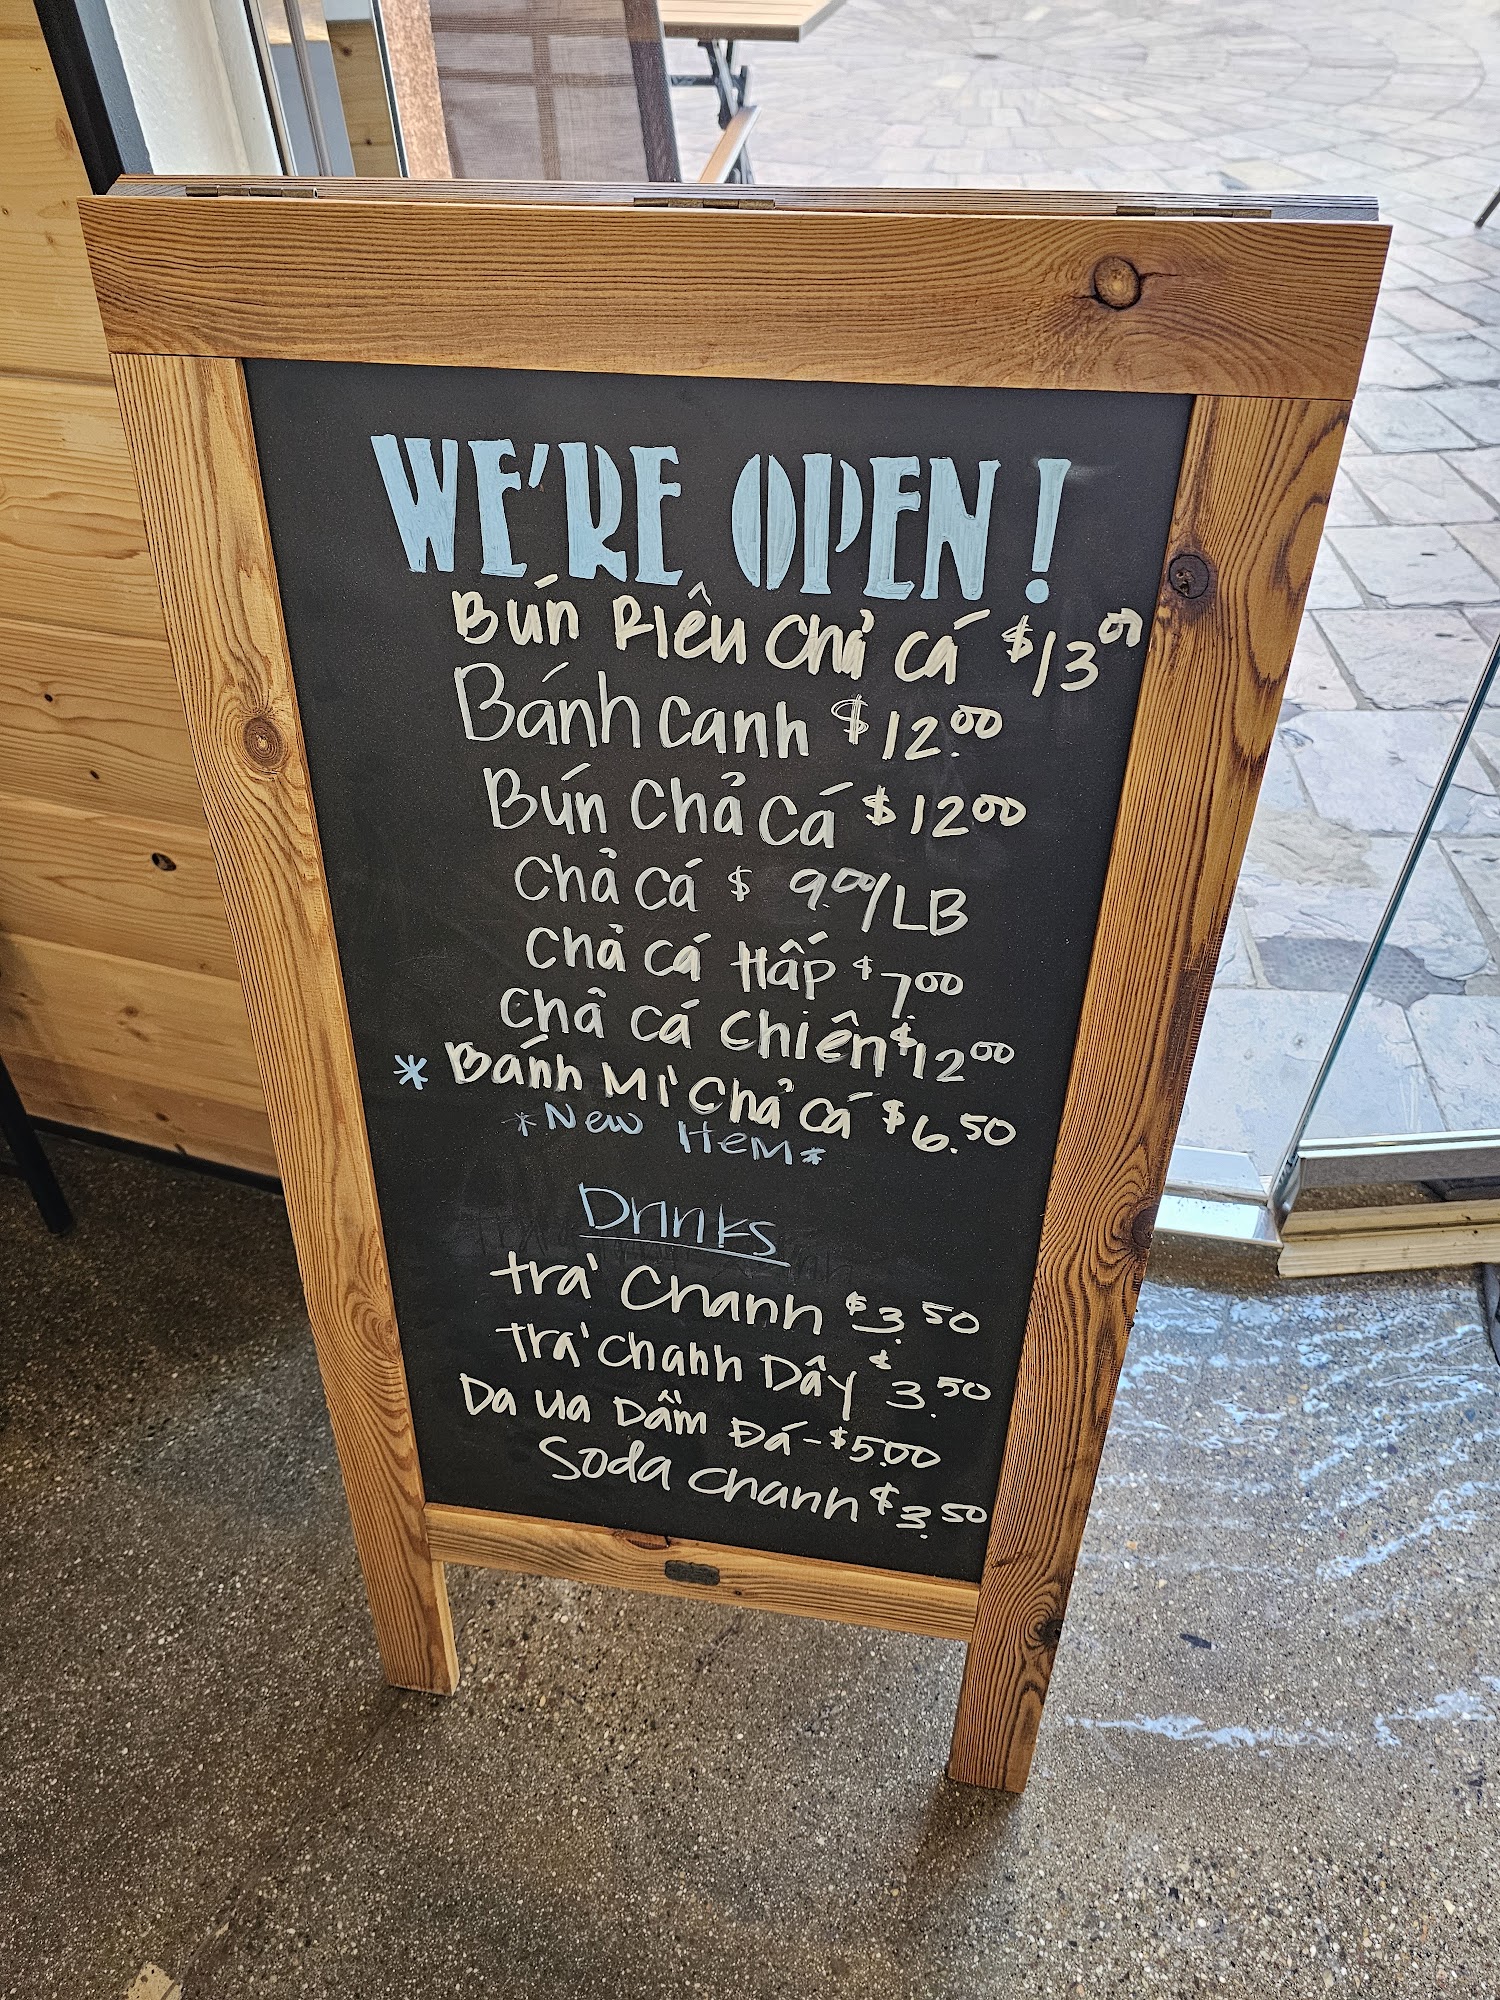 WE'RE OPEN!
Bún Riêu Chả Cá $13.00
Bánh canh $12.00
Bún Chả Cá $12.00
Chả Cá $ 9.00/LB
Chả Cá Hấp $7.00
Chả Cá Chiên $12.00
* Bánh Mì Chả Cá $6.50
*New Item*
Drinks
Trà Chanh $3.50
Trà Chanh Dây $3.50
Da ua Dầm Đá - $5.00
Soda Chanh $3.50